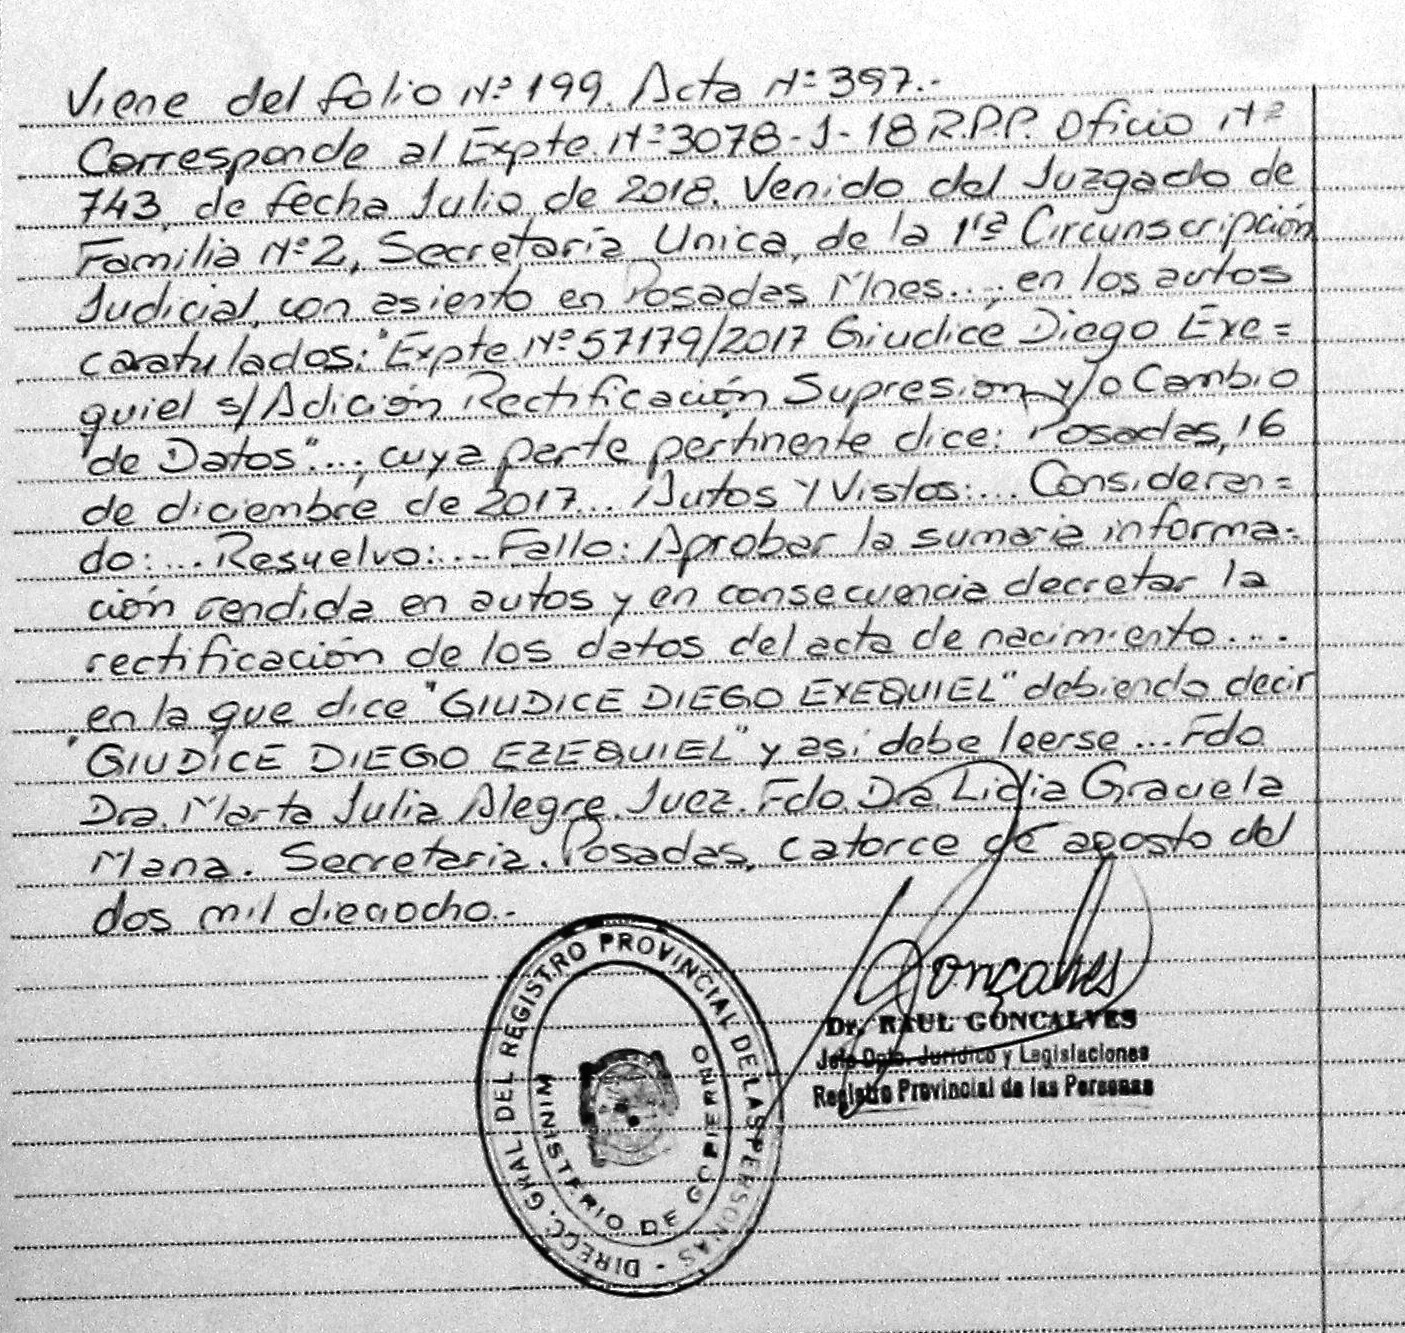 Viene del folio Nº 199. Acta Nº 397.-
Corresponde al Expte. Nº 3078-J-18 R.P.P. Oficio Nº
743, de fecha Julio de 2018. Venido del Juzgado de
Familia Nº 2, Secretaría Unica, de la 1ra Circunscripción
Judicial, con asiento en Posadas Mnes...., en los autos
caratulados: "Expte. Nº 57179/2017 Giudice Diego Exe=
quiel s/Adición Rectificación Supresion y/o Cambio
de Datos"..., cuya parte pertinente dice: Posadas, 16
de diciembre de 2017... Autos Y Vistos:... Consideran=
do:... Resuelvo:.... Fallo: Aprobar la sumaria informa=
ción rendida en autos y en consecuencia decretar la
rectificación de los datos del acta de nacimiento....
en la que dice "GIUDICE DIEGO EXEQUIEL" debiendo decir
"GIUDICE DIEGO EZEQUIEL" y así debe leerse... Fdo
Dra. Marta Julia Alegre. Juez. Fdo. Dra Lidia Graciela
Mana. Secretaria. Posadas, catorce de agosto del
dos mil dieciocho.-
DIRECC. GRAL. DEL REGISTRO PROVINCIAL DE LAS PERSONAS -
MINISTERIO DE GOBIERNO
Goncalves
Dr. RAUL GONCALVES
Jefe Dpto. Jurídico y Legislaciones
Registro Provincial de las Personas